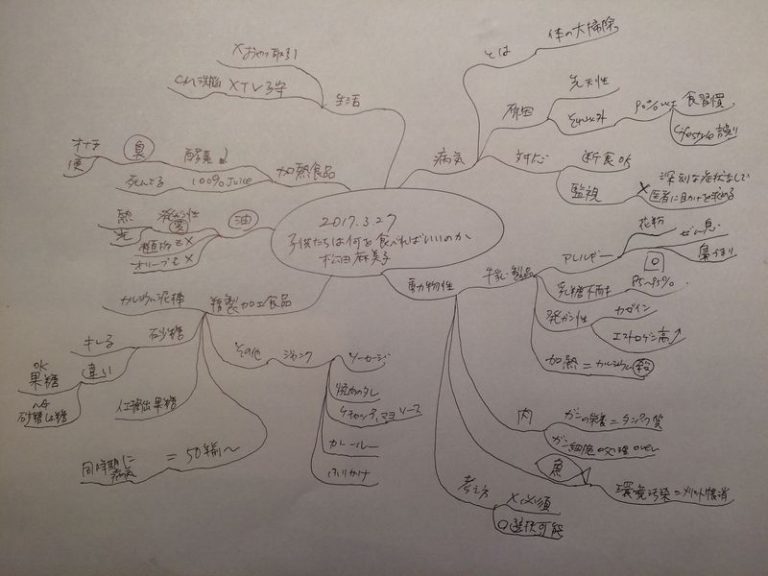 2017.3.27
子供たちは何を食べればいいのか
松田麻美子
病気
とは
体の大掃除
原因
先天性
それ以外
90%以上
食習慣
Lifestyle誤り
対応
断食OK
監視
深刻な症状なし
× 医者に助けを求める
動物性
牛乳・製品
アレルギー
花粉
ぜん息
鼻づまり
乳糖不耐
75~95%
発ガン性
カゼイン
エストロゲン高↑
加熱=カルシウム 殺
肉
ガンの栄養=タンパク質
魚
環境汚染=メリット帳消
考え方
×必須
○選択可能
精製加工食品
カルシウム泥棒
砂糖
キレる
違い
OK
果糖
NG
砂糖
人工抽出果糖
同時期に
=50歳~
その他
ジャンク
ソーセージ
焼肉のタレ
ケチャップ、マヨ ソース
カレールー
ふりかけ
油
発ガン性
熱
光
植物でも×
オリーブも×
加熱食品
酵素
臭
オナラ
便
死んでる
100% Juice
生活
×おやつ取引
×TV子守
CM洗脳